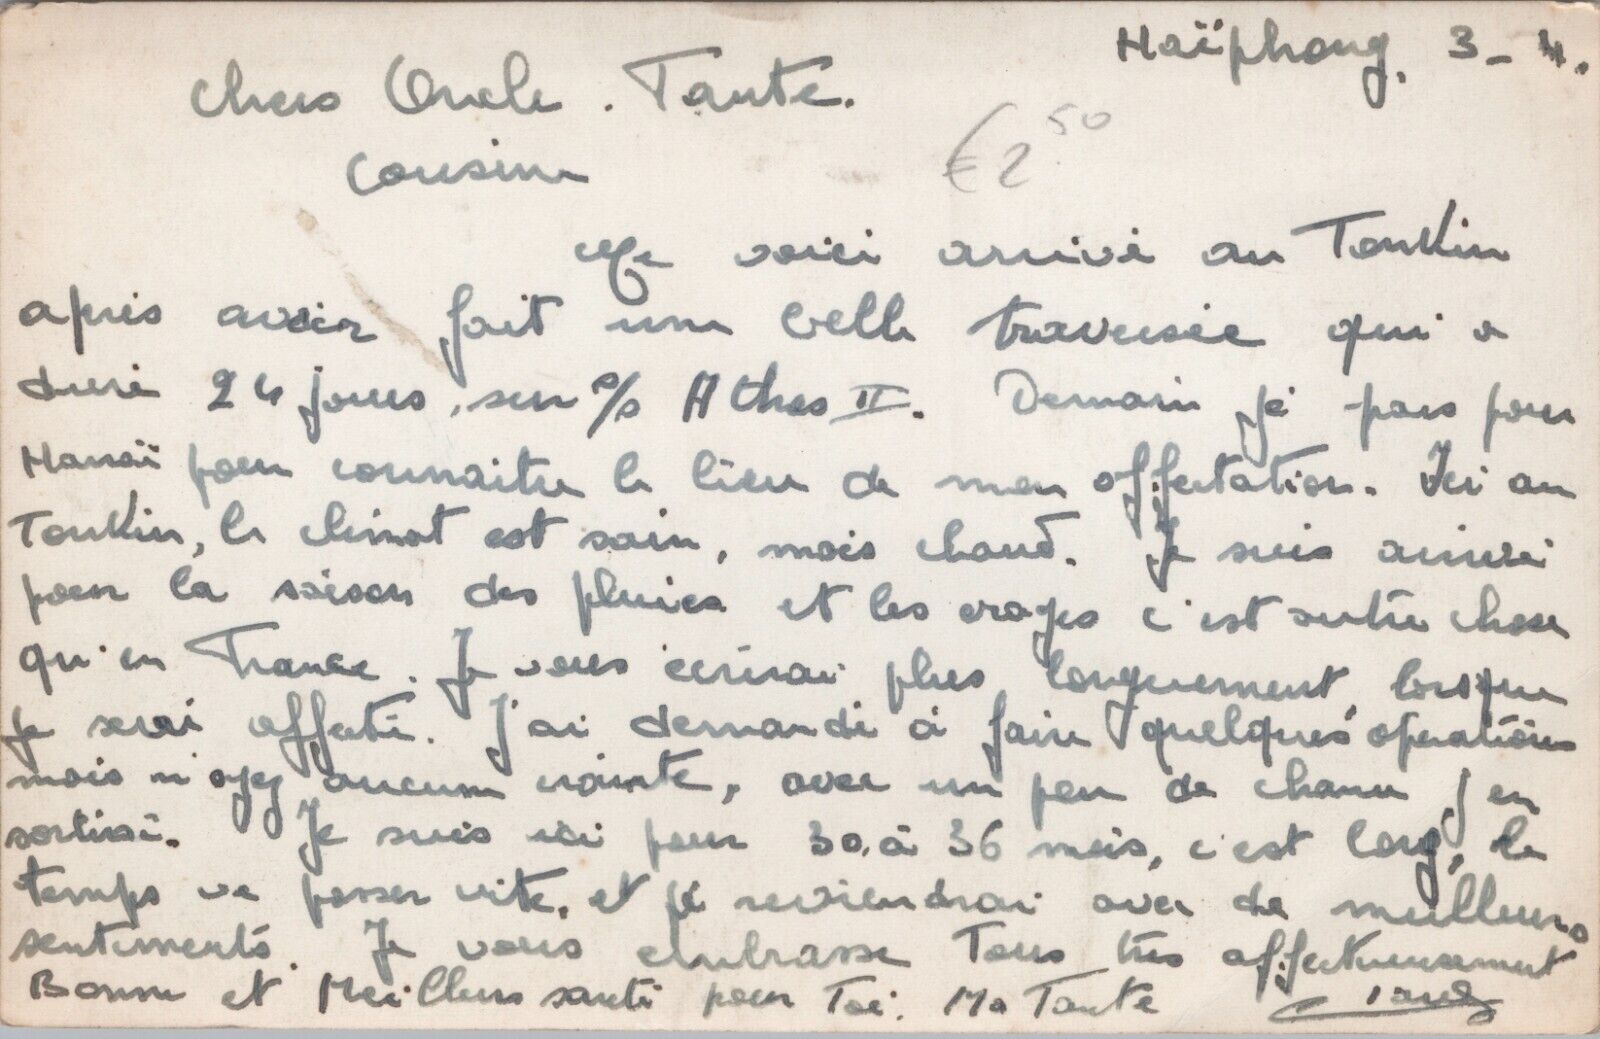 Haïphong, 3-4.
Chers Oncle. Tante.
€2 50
Cousine
Me voici arrivé au Tonkin
après avoir fait une belle traversée qui a
duré 24 jours, sur s/s Athos II. Demain je pars pour
Hanoï pour connaitre le lieu de mon affectation. Ici au
Tonkin, le climat est sain, mais chaud. Je suis arrivé
pour la saison des pluies et les orages c'est autre chose
qu'en France. Je vous écrirai plus longuement, lorsque
je serai affecté. J'ai demandé à faire quelques opérations
mais n'ayez aucune crainte, avec un peu de chance j'en
sortirai. Je suis ici pour 30 à 36 mois, c'est long, le
temps va passer vite, et je reviendrai avec de meilleurs
sentiments. Je vous embrasse Tous très affectueusement
Bonne et Meilleurs santé pour Toi. Ma Tante